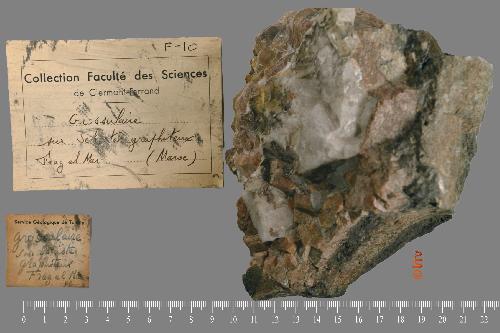 F-10
Collection Faculté des Sciences
de Clermont-Ferrand
Grossulaire
sur Schistes graphiteux
(Maroc)
Service Géologique de
grossulaire
sur schistes
graphiteux
0 1 2 3 4 5 6 7 8 9 10 11 12 13 14 15 16 17 18 19 20 21 22